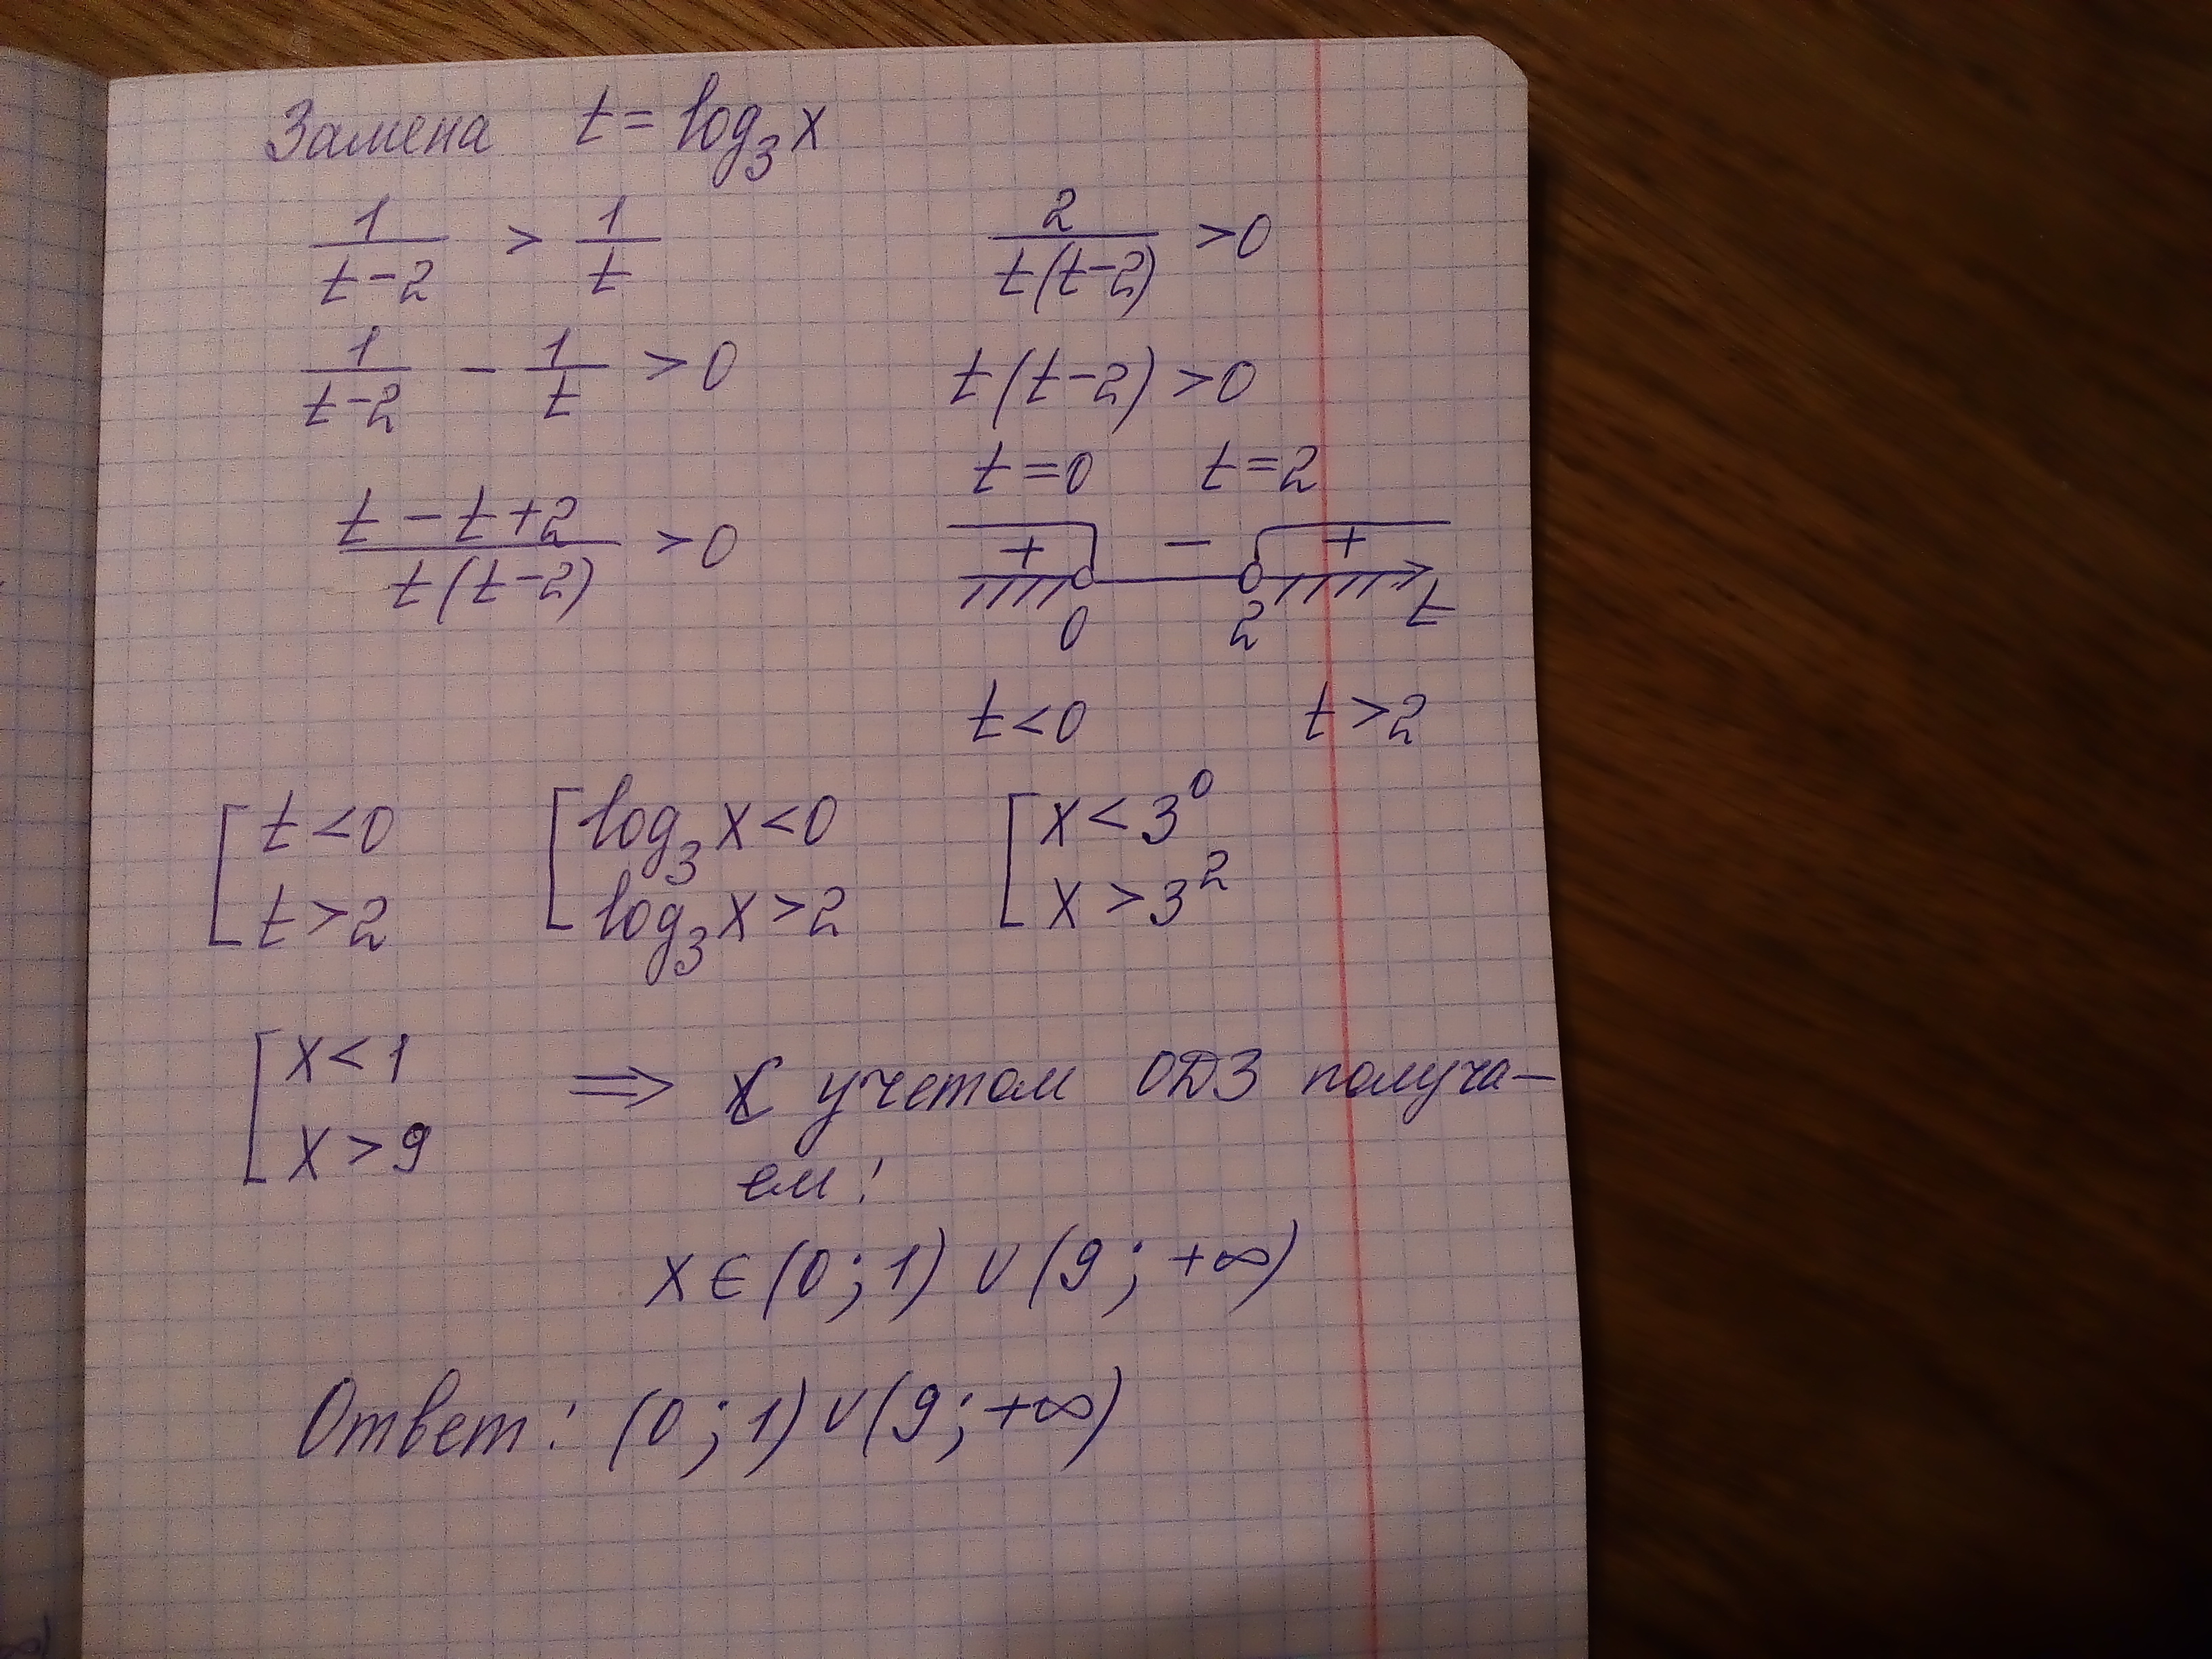 Замена t = log₃ x
1/(t-2) > 1/t
1/(t-2) - 1/t > 0
(t - t + 2)/(t(t-2)) > 0
2/(t(t-2)) > 0
t(t-2) > 0
t=0 t=2
+ - +
0 2 t
t<0 t>2
[ t<0 [ log₃ x<0 [ x<3⁰
t>2 log₃ x>2 x>3²
[ x<1 ⟹ С учетом ОДЗ получа-
x>9 ем:
x∈(0;1)∪(9;+∞)
Ответ: (0;1)∪(9;+∞)